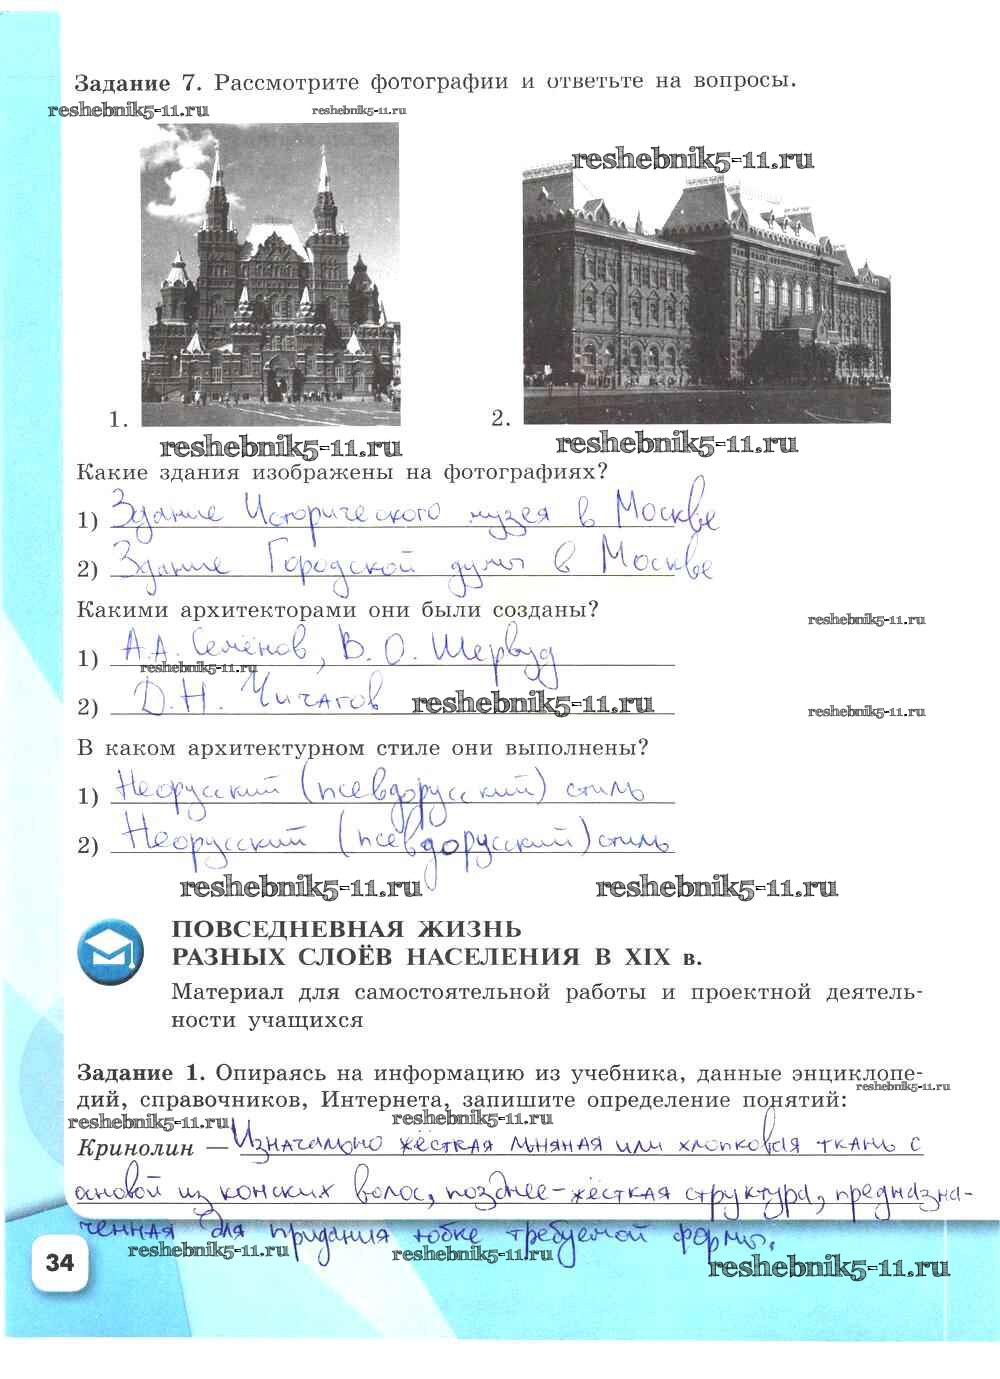 Задание 7. Рассмотрите фотографии и ответьте на вопросы.
reshebnik5-11.ru reshebnik5-11.ru
reshebnik5-11.ru
1. 2.
reshebnik5-11.ru reshebnik5-11.ru
Какие здания изображены на фотографиях?
1) Здание Исторического музея в Москве
2) Здание Городской думы в Москве
Какими архитекторами они были созданы?
reshebnik5-11.ru
1) А.А. Семёнов, В.О. Шервуд
reshebnik5-11.ru
2) Д.Н. Чичагов reshebnik5-11.ru reshebnik5-11.ru
В каком архитектурном стиле они выполнены?
1) Неорусский (псевдорусский) стиль
2) Неорусский (псевдорусский) стиль
reshebnik5-11.ru reshebnik5-11.ru
ПОВСЕДНЕВНАЯ ЖИЗНЬ
РАЗНЫХ СЛОЁВ НАСЕЛЕНИЯ В XIX в.
Материал для самостоятельной работы и проектной деятель-
ности учащихся
Задание 1. Опираясь на информацию из учебника, данные энциклопе-
reshebnik5-11.ru
дий, справочников, Интернета, запишите определение понятий:
reshebnik5-11.ru reshebnik5-11.ru
Кринолин — Изначально жёсткая льняная или хлопковая ткань с
ановой из конских волос, позднее-жёсткая структура, предназна-
ченная для придания юбке требуемой формы.
34 reshebnik5-11.ru reshebnik5-11.ru reshebnik5-11.ru